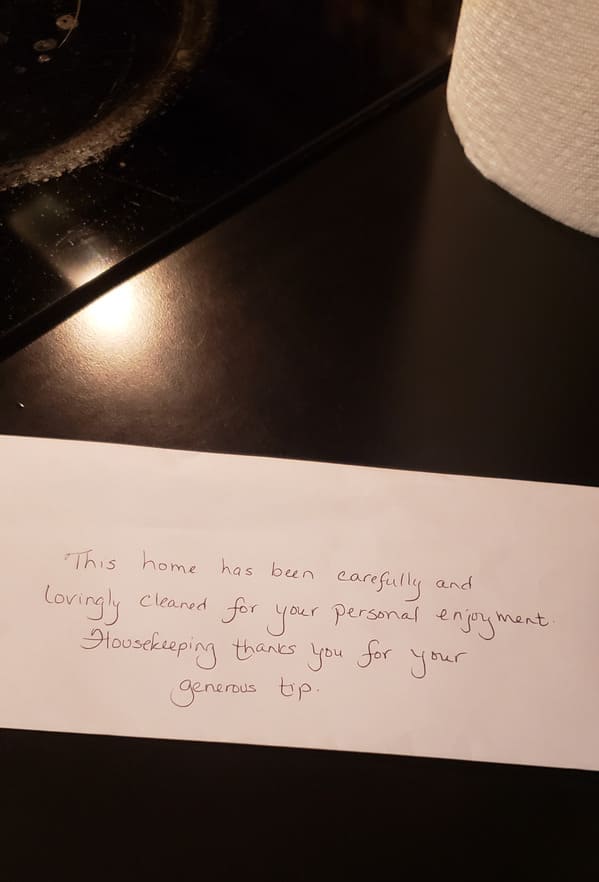 This home has been carefully and
lovingly cleaned for your personal enjoyment.
Housekeeping thanks you for your
generous tip.